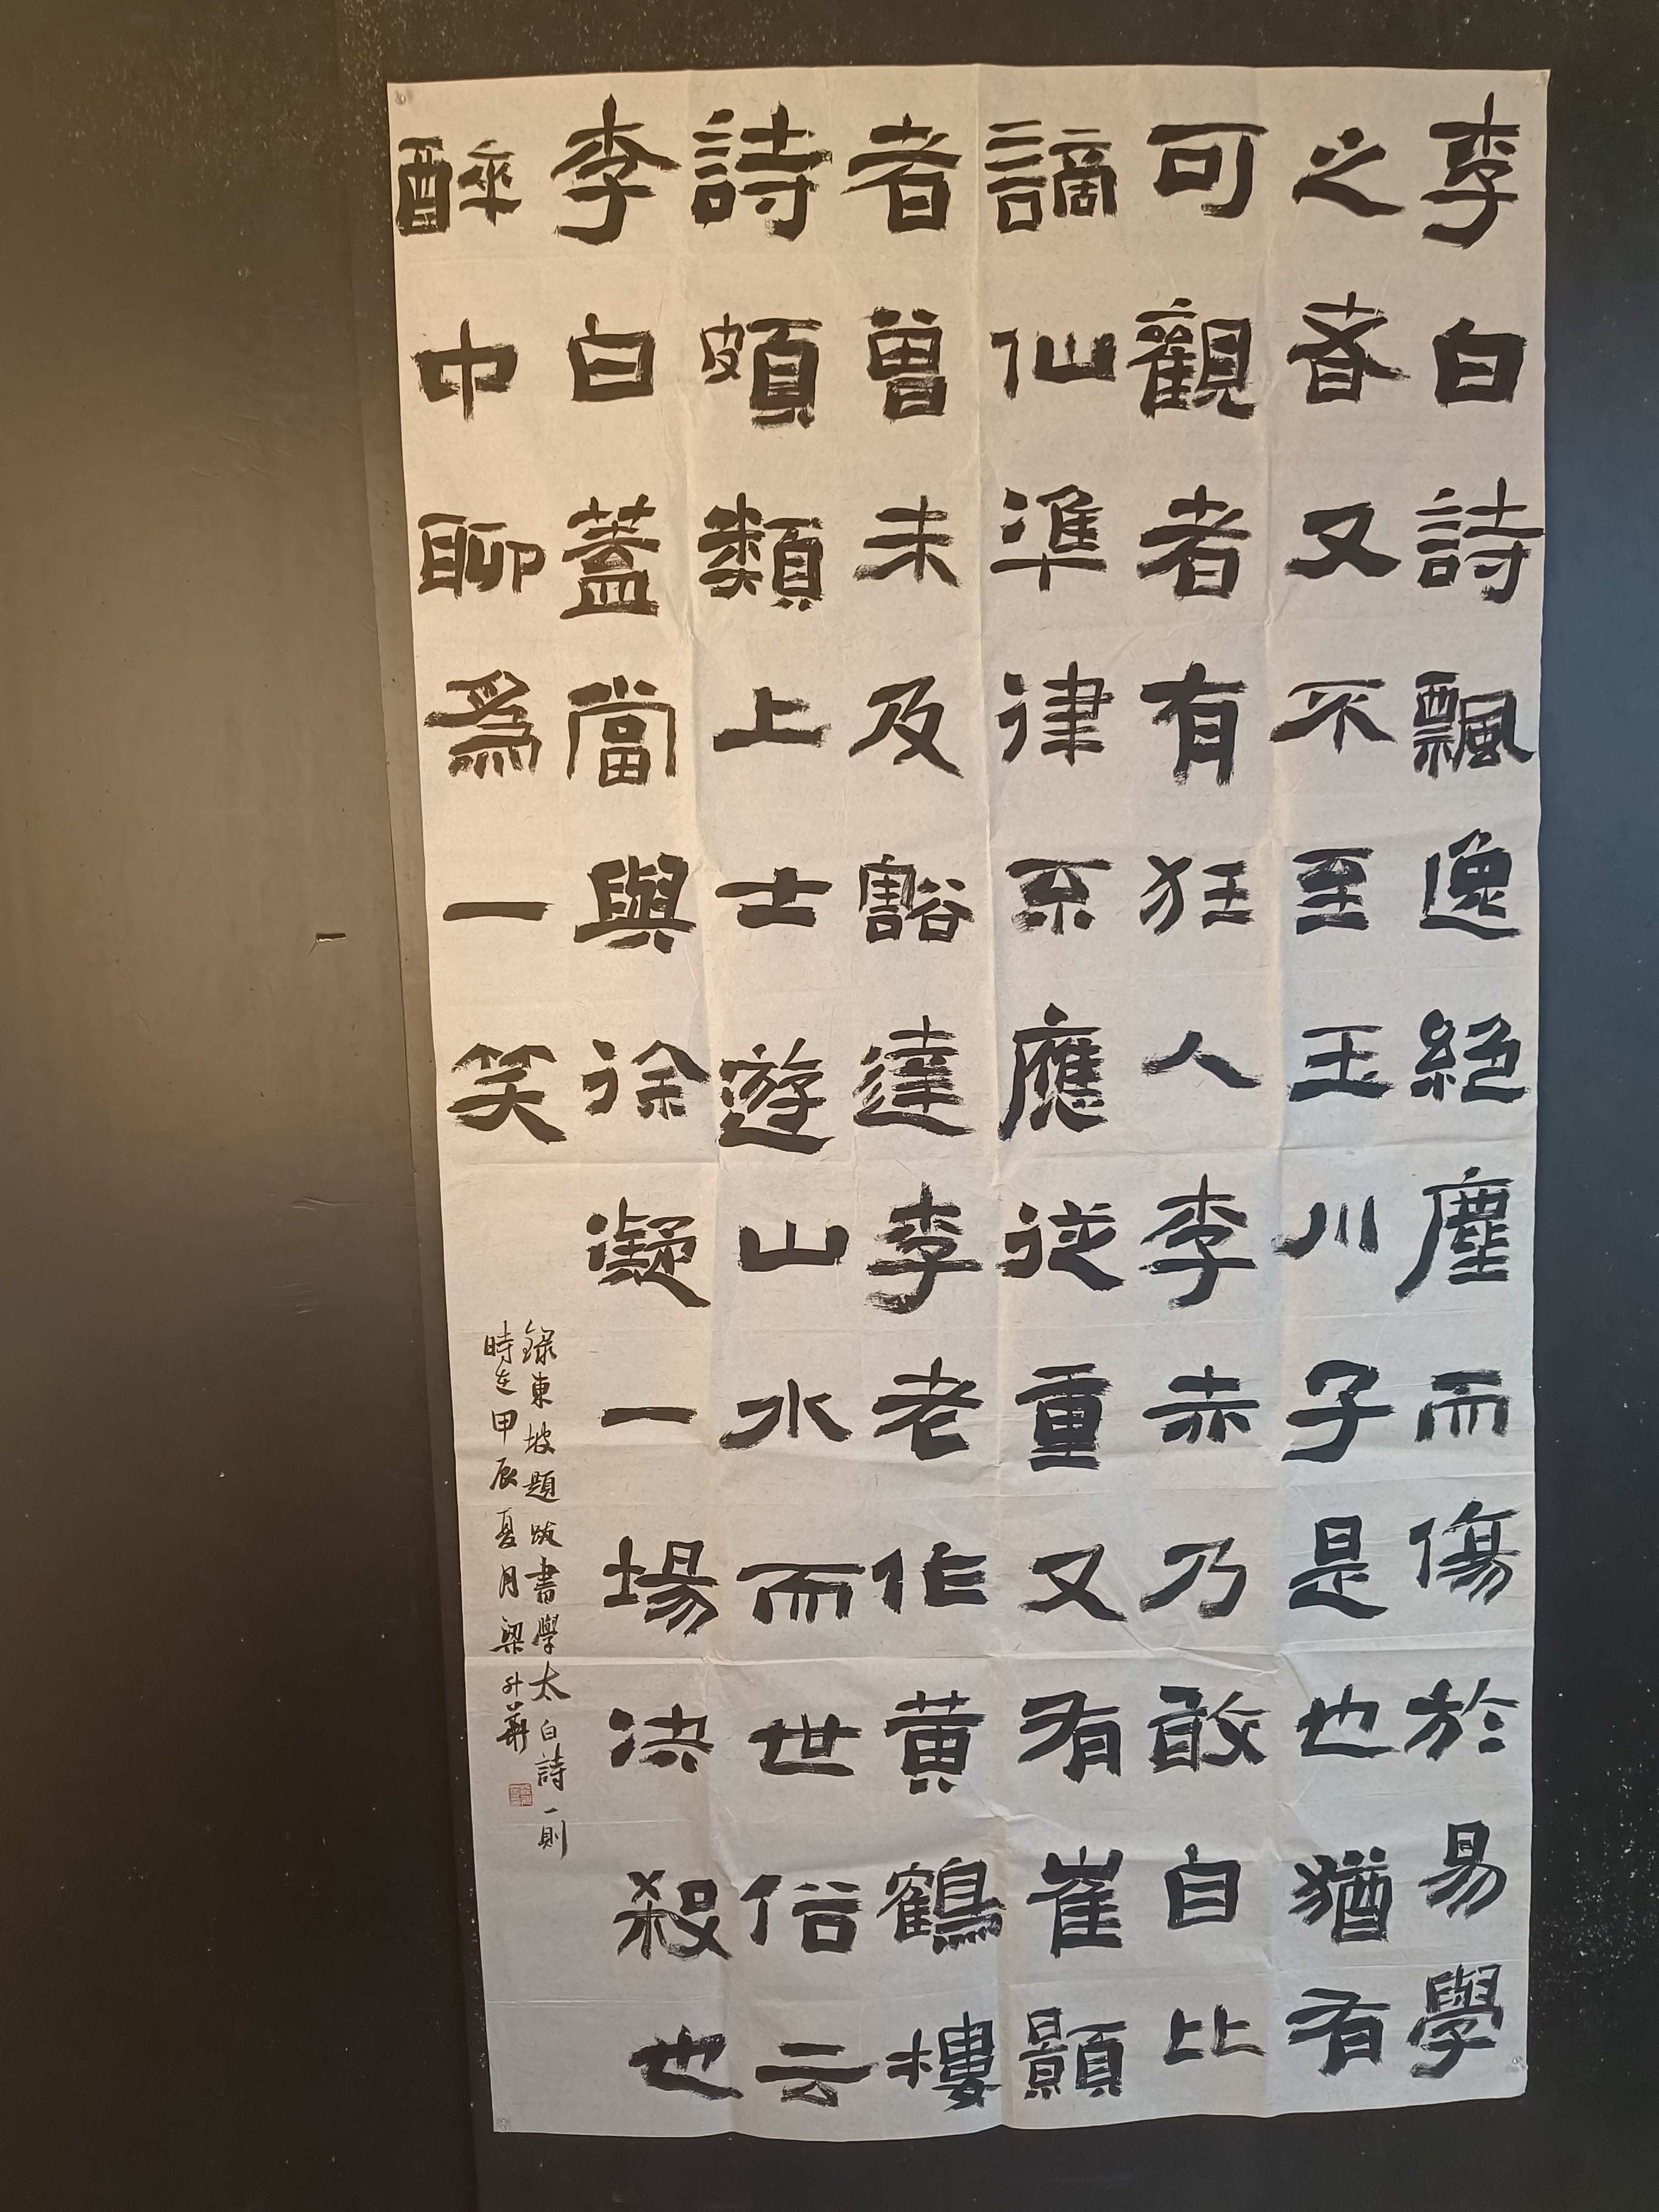 李白詩飄逸絕塵而傷於易學
之者又不至玉川子是也猶有
可觀者有狂人李赤乃敢自比
謫仙準律不應從重又有崔顥
者曾未及豁達李老作黃鶴樓
詩頗類上士遊山水而世俗云
李白蓋當與徐凝一場決殺也
醉中聊爲一笑
錄東坡題跋書學太白詩一則
時在甲辰夏月梁升華